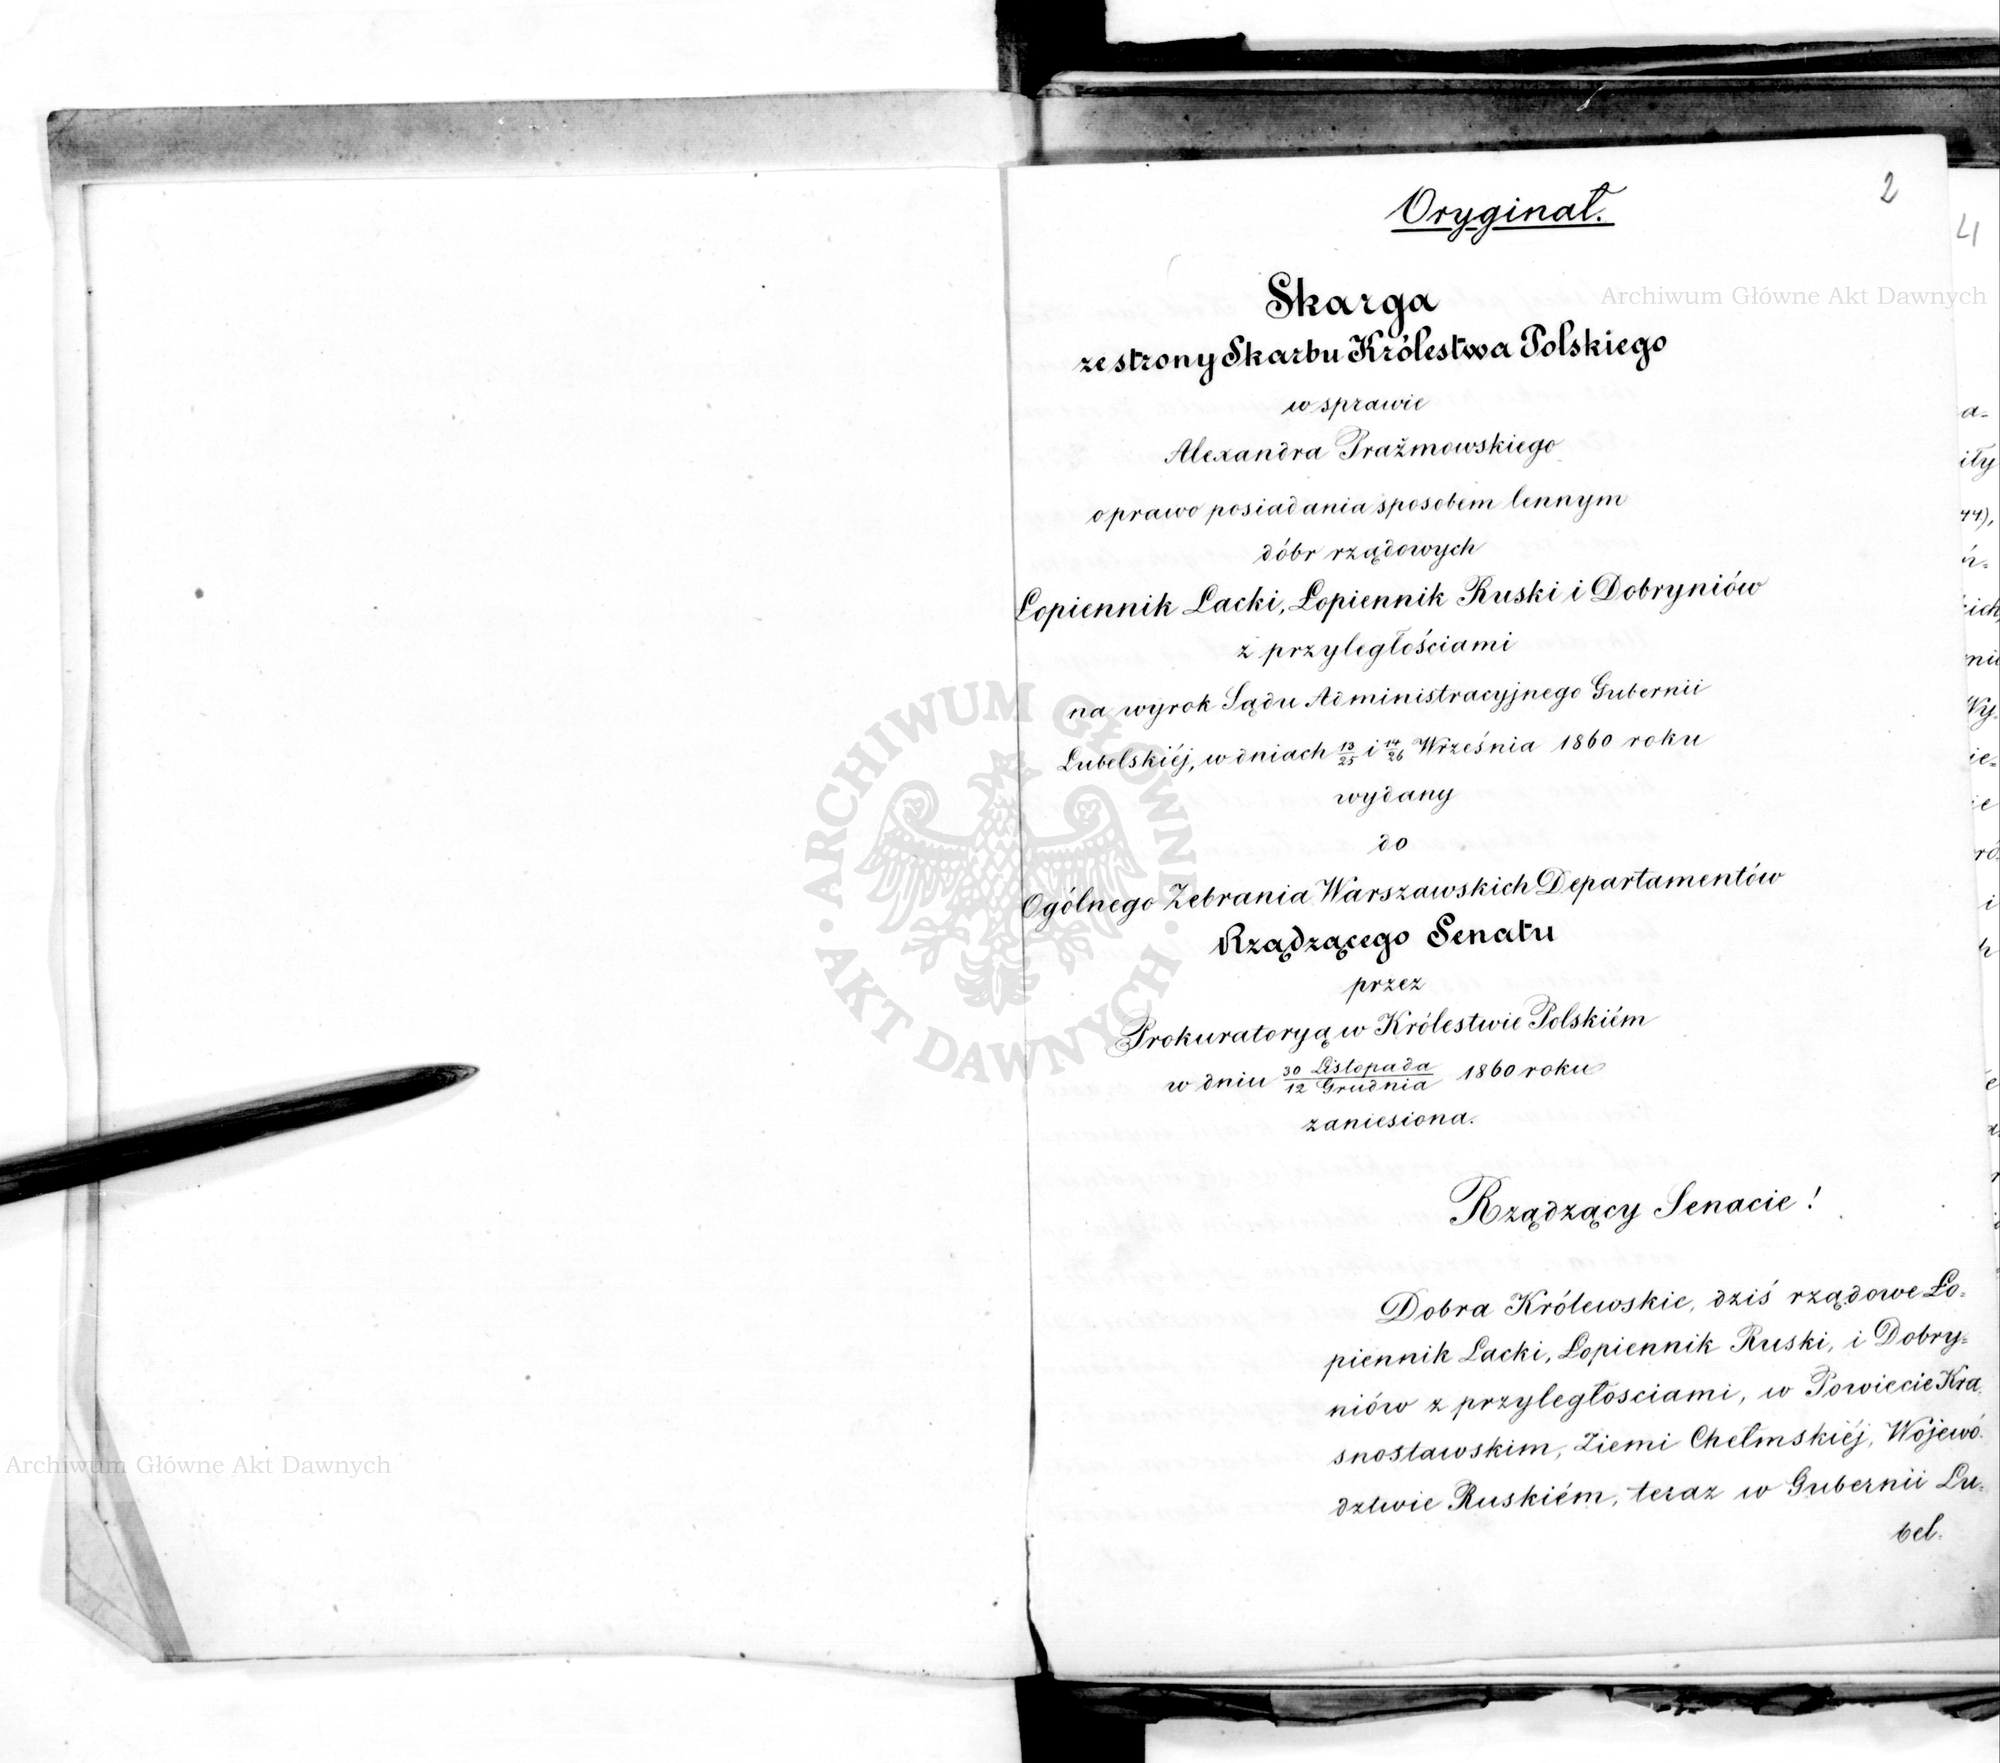 Oryginał.
2
4
Skarga
ze strony Skarbu Królestwa Polskiego
w sprawie
Alexandra Prażmowskiego
o prawo posiadania sposobem lennym
dóbr rządowych
Łopiennik Lacki, Łopiennik Ruski i Dobryniów
z przyległościami
na wyrok Sądu Administracyjnego Gubernii
Lubelskiéj, w dniach 13/25 i 14/26 Września 1860 roku
wydany
do
Ogólnego Zebrania Warszawskich Departamentów
Rządzącego Senatu
przez
Prokuratoryą w Królestwie Polskiém
w dniu 30 Listopada/12 Grudnia 1860 roku
zaniesiona.
Rządzący Senacie!
Dobra Królewskie, dziś rządowe Ło-
piennik Lacki, Łopiennik Ruski, i Dobry-
niów z przyległosciami, w Powiecie Kra-
snostawskim, Ziemi Chełmskiéj, Wojewó-
dztwie Ruskiém, teraz w Gubernii Lu-
bel-
Archiwum Główne Akt Dawnych
Archiwum Główne Akt Dawnych
ARCHIWUM GŁÓWNE · AKT DAWNYCH ·